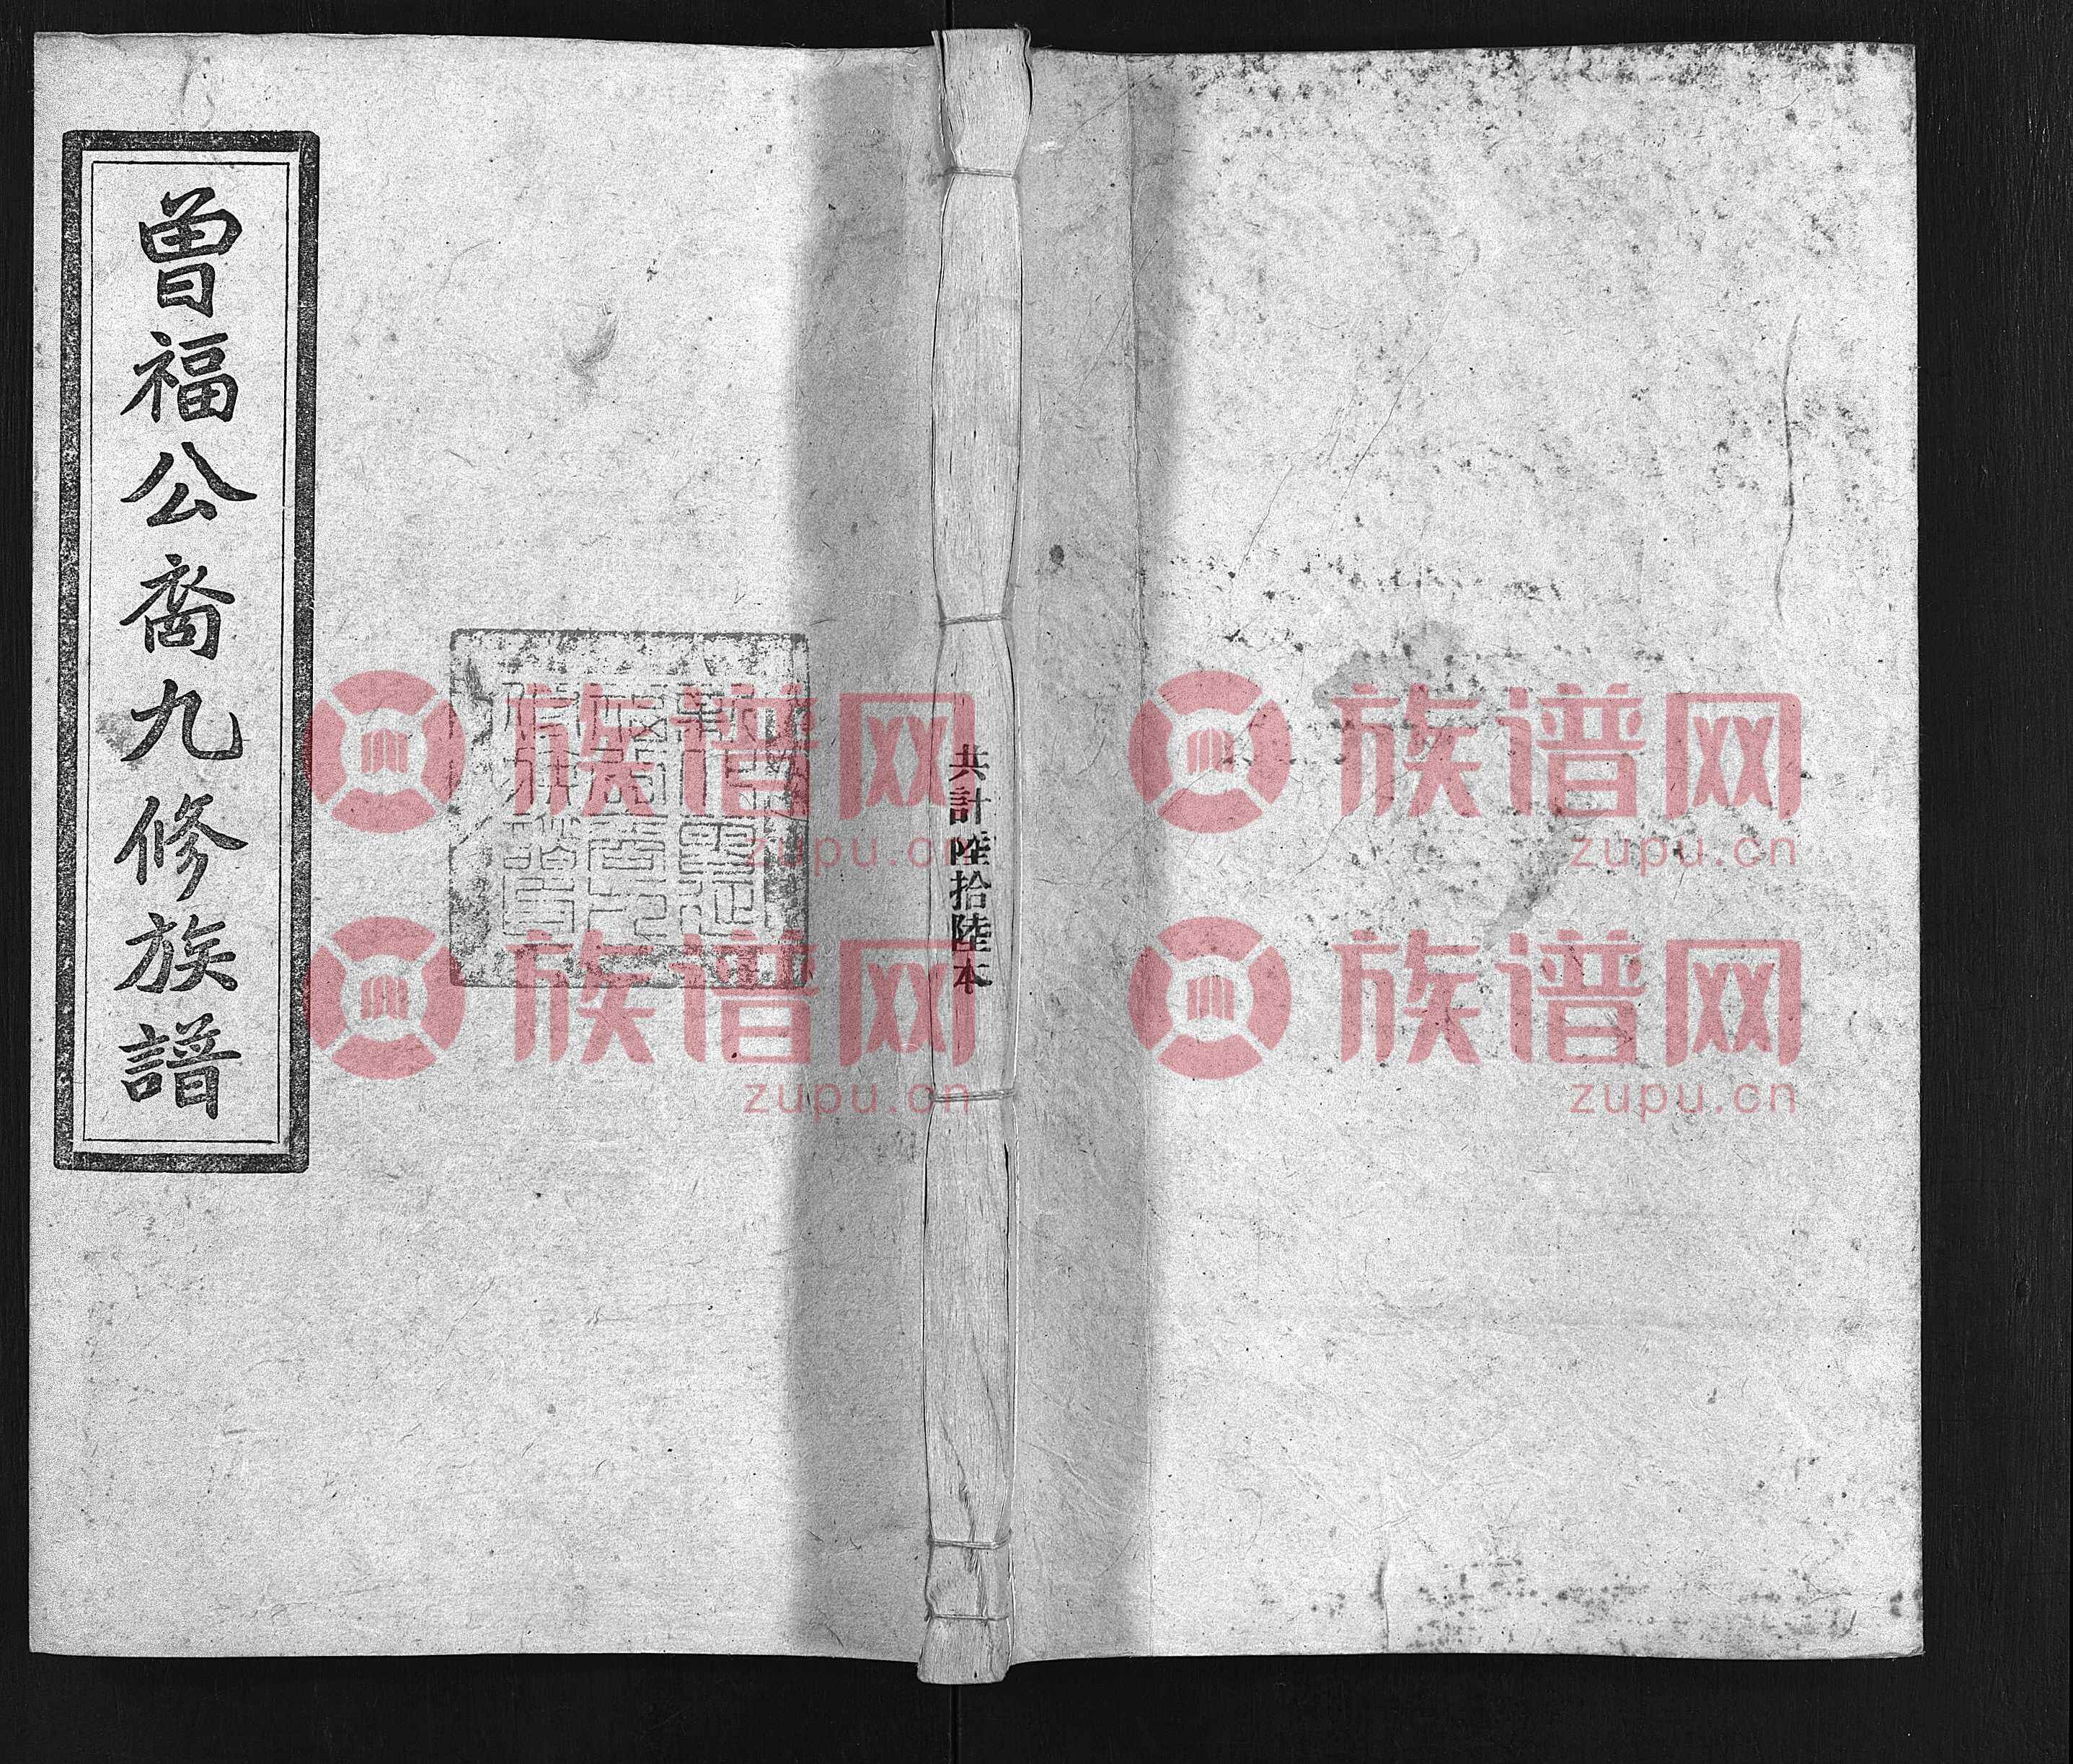 曾福公裔九修族譜
共計陸拾陸本
族谱网
zupu.cn
族谱网
zupu.cn
族谱网
zupu.cn
族谱网
zupu.cn